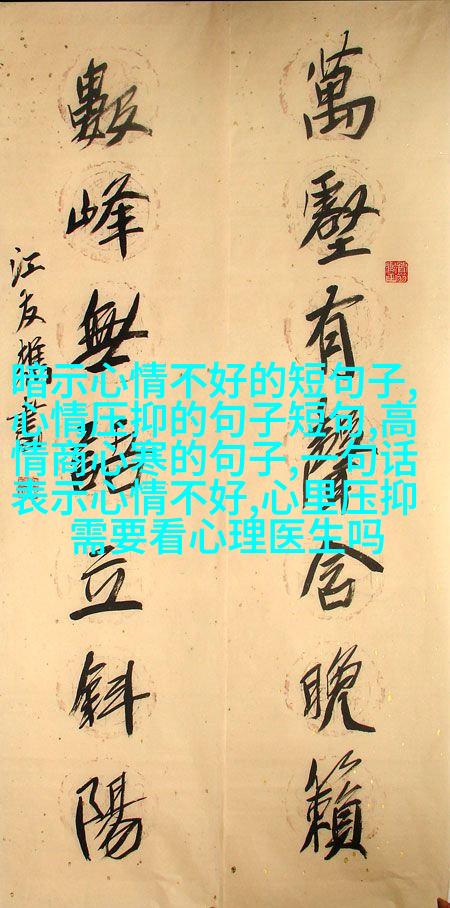 萬壑有聲含晚籟
數峰無語立斜陽
江友樵書
暗示心情不好的短句子,
心情压抑的句子短句,高
情商心寒的句子,一句话
表示心情不好,心里压抑
需要看心理医生吗